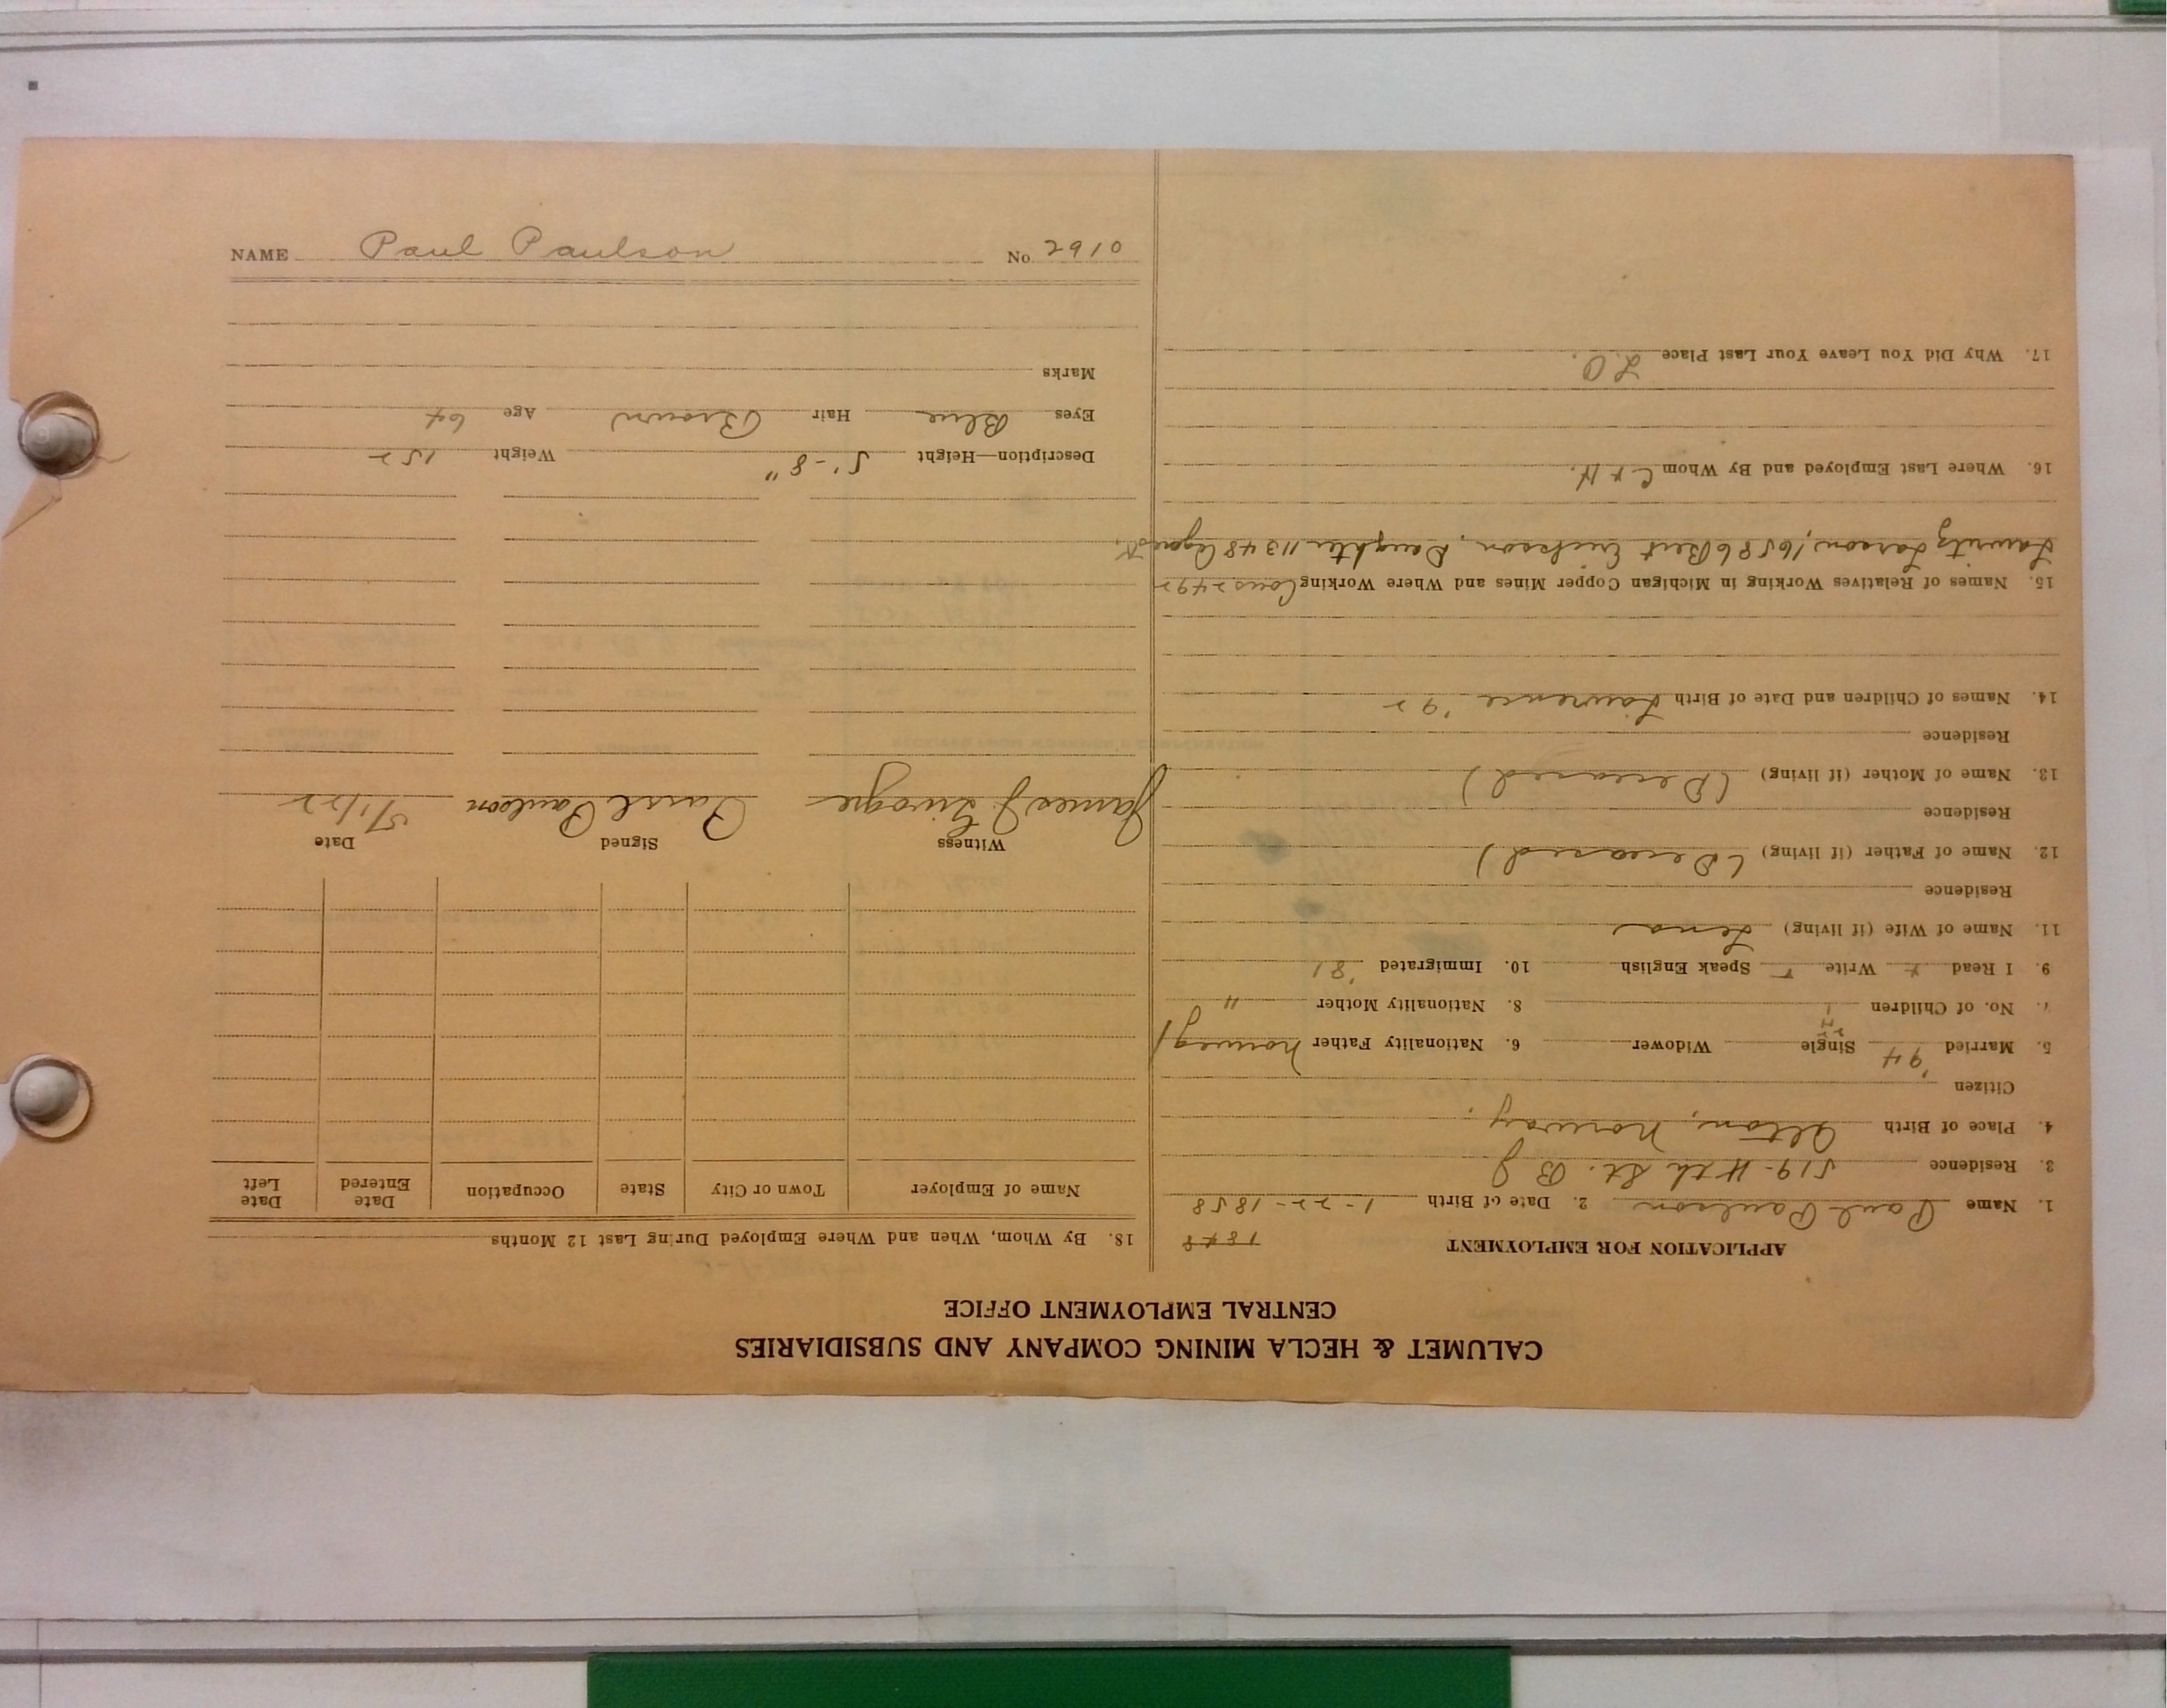 CALUMET & HECLA MINING COMPANY AND SUBSIDIARIES
CENTRAL EMPLOYMENT OFFICE
APPLICATION FOR EMPLOYMENT 1848
1. Name Paul Paulson 2. Date of Birth 1-22-1858
3. Residence 519-4th St. B J
4. Place of Birth Alton, Norway.
Citizen
5. Married '94 Single Widower 6. Nationality Father Norweg
7. No. of Children 1 8. Nationality Mother "
9. I Read Write Speak English 10. Immigrated '81
11. Name of Wife (if living) Lena
Residence
12. Name of Father (if living) (Deceased)
Residence
13. Name of Mother (if living) (Deceased)
Residence
14. Names of Children and Date of Birth Lawrence '92
15. Names of Relatives Working in Michigan Copper Mines and Where Working Cous 2492
Lawritz Larson, 16586 Bert Erickson, Daughter 11348 Agnes
16. Where Last Employed and By Whom C & H.
17. Why Did You Leave Your Last Place L.O.
18. By Whom, When and Where Employed During Last 12 Months
Name of Employer Town or City State Occupation Date Entered Date Left
Witness Signed Date
James J. Paul Paulson 5/1/22
Description—Height 5'-8" Weight 152
Eyes Blue Hair Brown Age 64
Marks
NAME Paul Paulson No. 2910